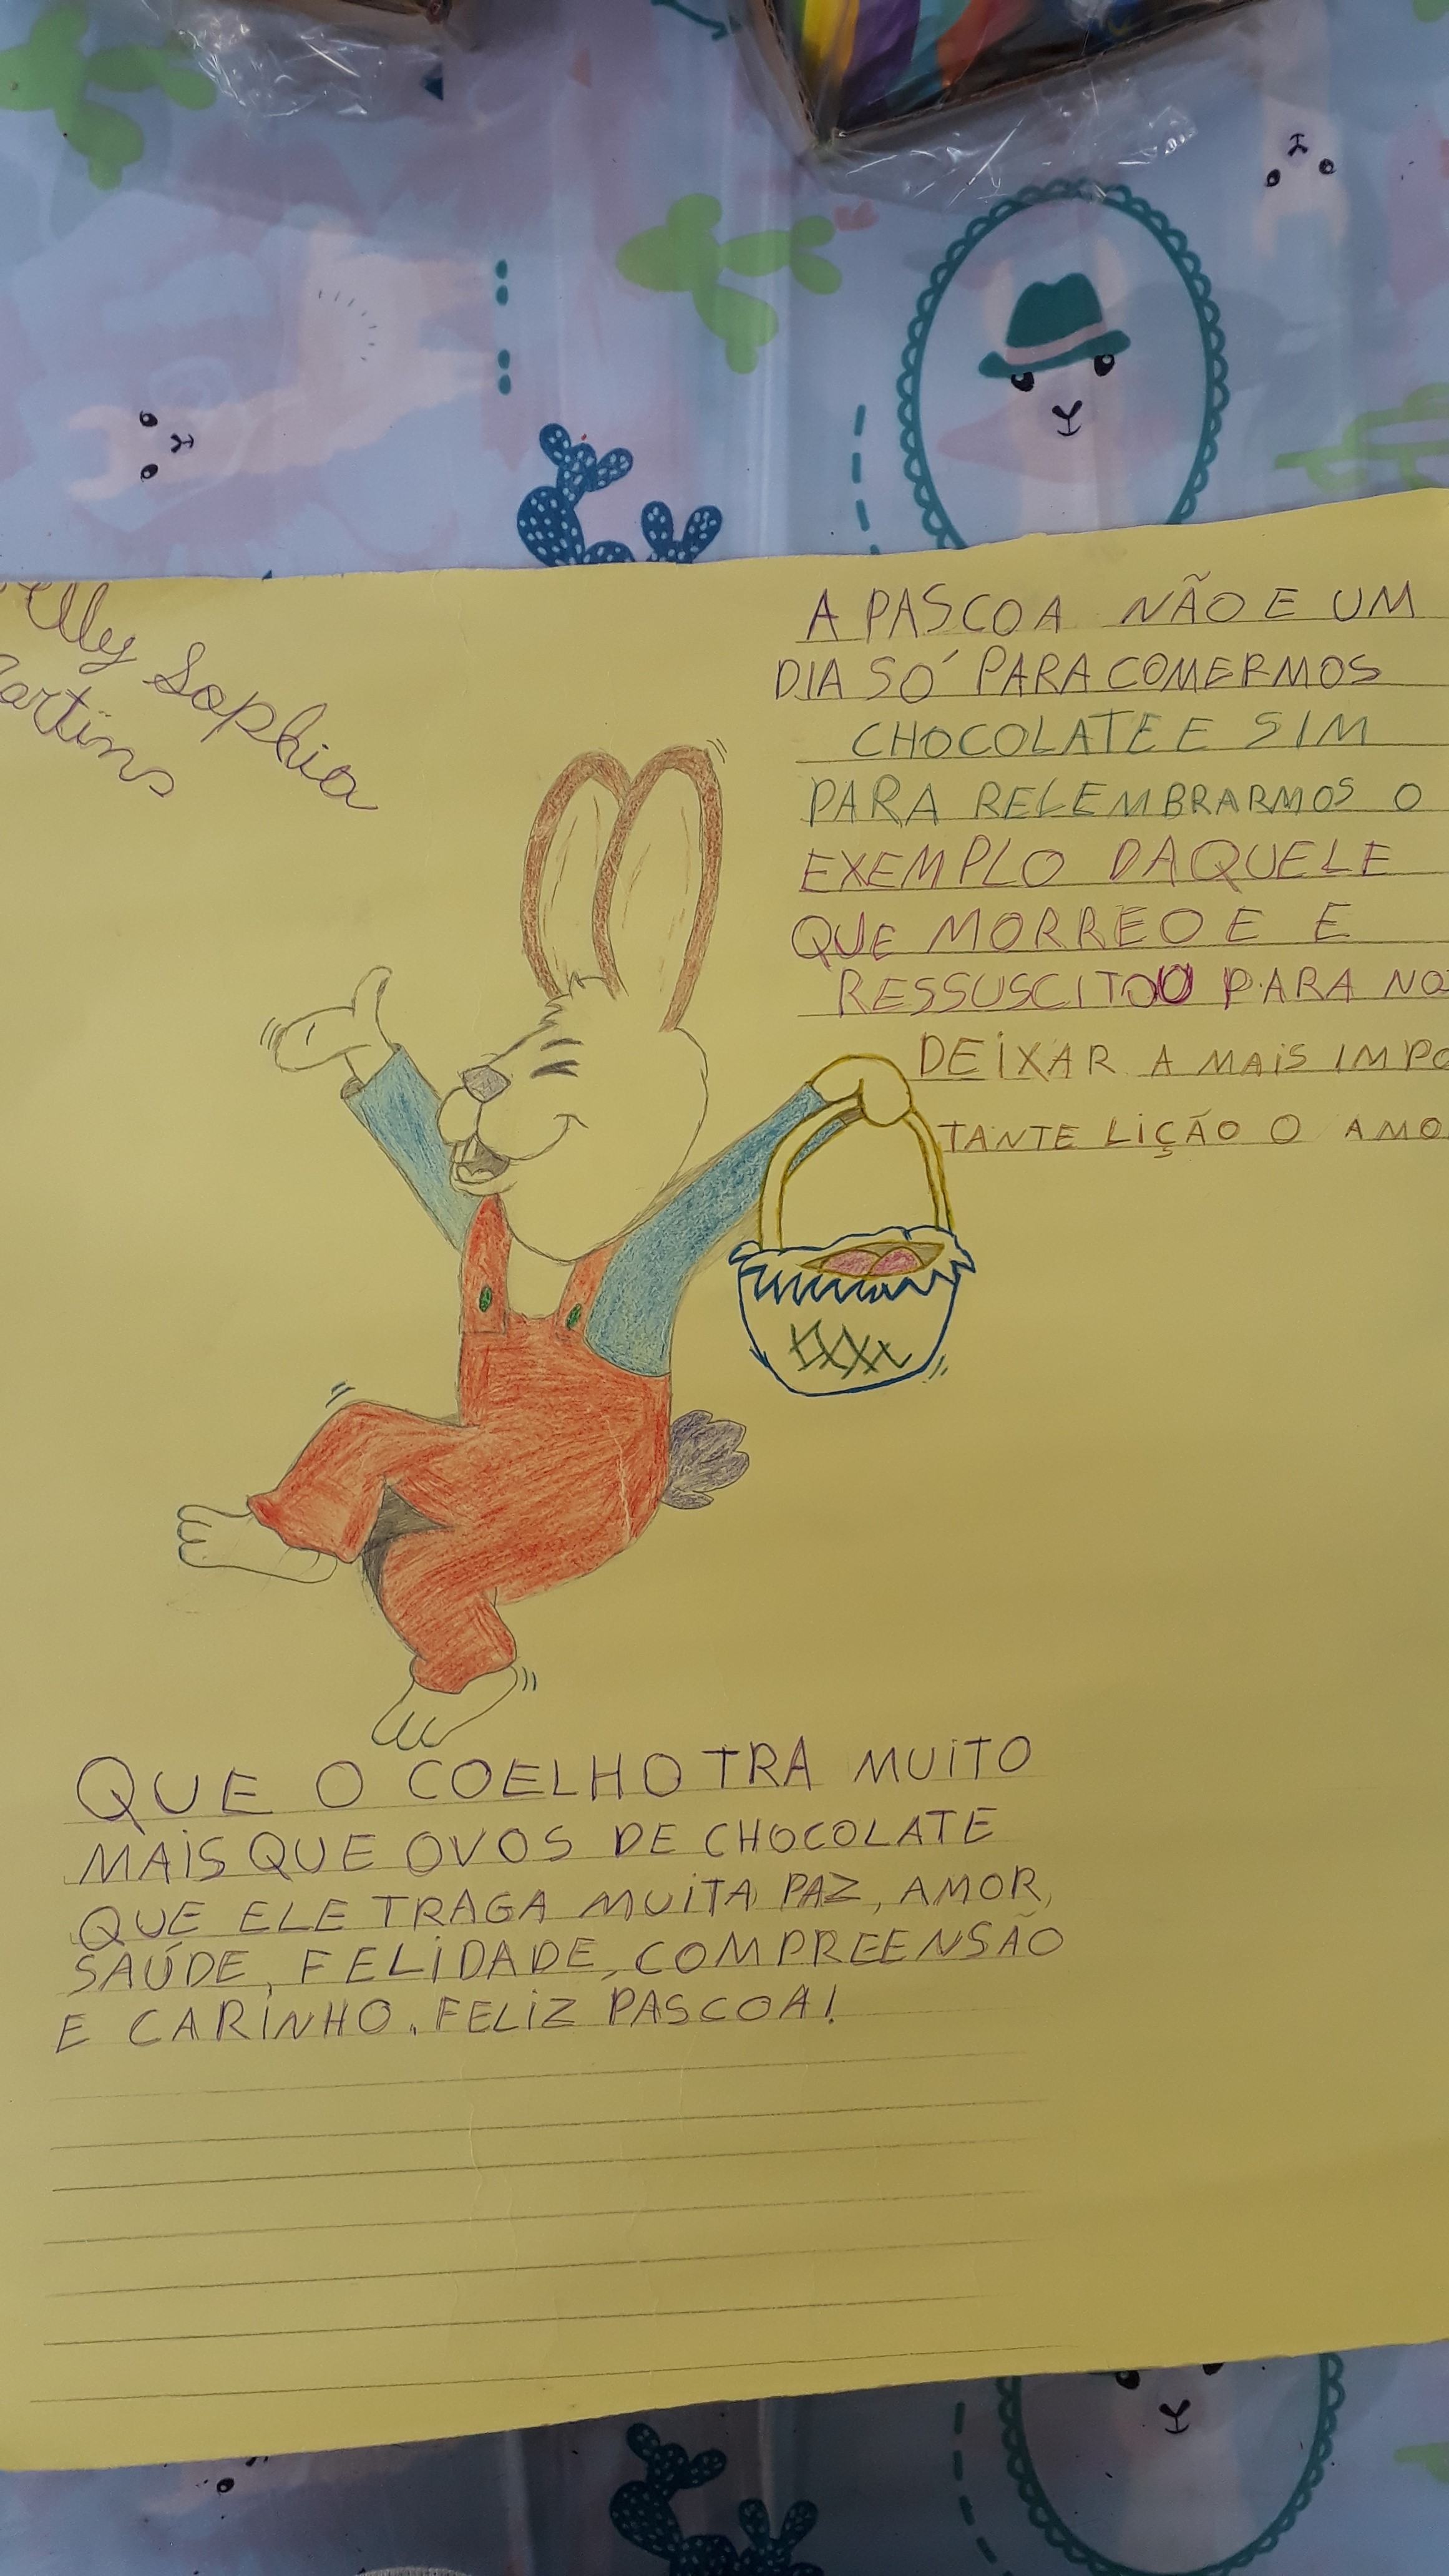 elly Sophia
artins
A PASCOA NÃO E UM
DIA SÓ PARA COMERMOS
CHOCOLATE E SIM
PARA RELEMBRARMOS O
EXEMPLO DAQUELE
QUE MORREO E E
RESSUSCITOU PARA NO
DEIXAR A MAIS IMPO
TANTE LIÇÃO O AMO
QUE O COELHO TRA MUITO
MAIS QUE OVOS DE CHOCOLATE
QUE ELE TRAGA MUITA PAZ, AMOR,
SAÚDE, FELIDADE, COMPREENSÃO
E CARINHO. FELIZ PÁSCOA!